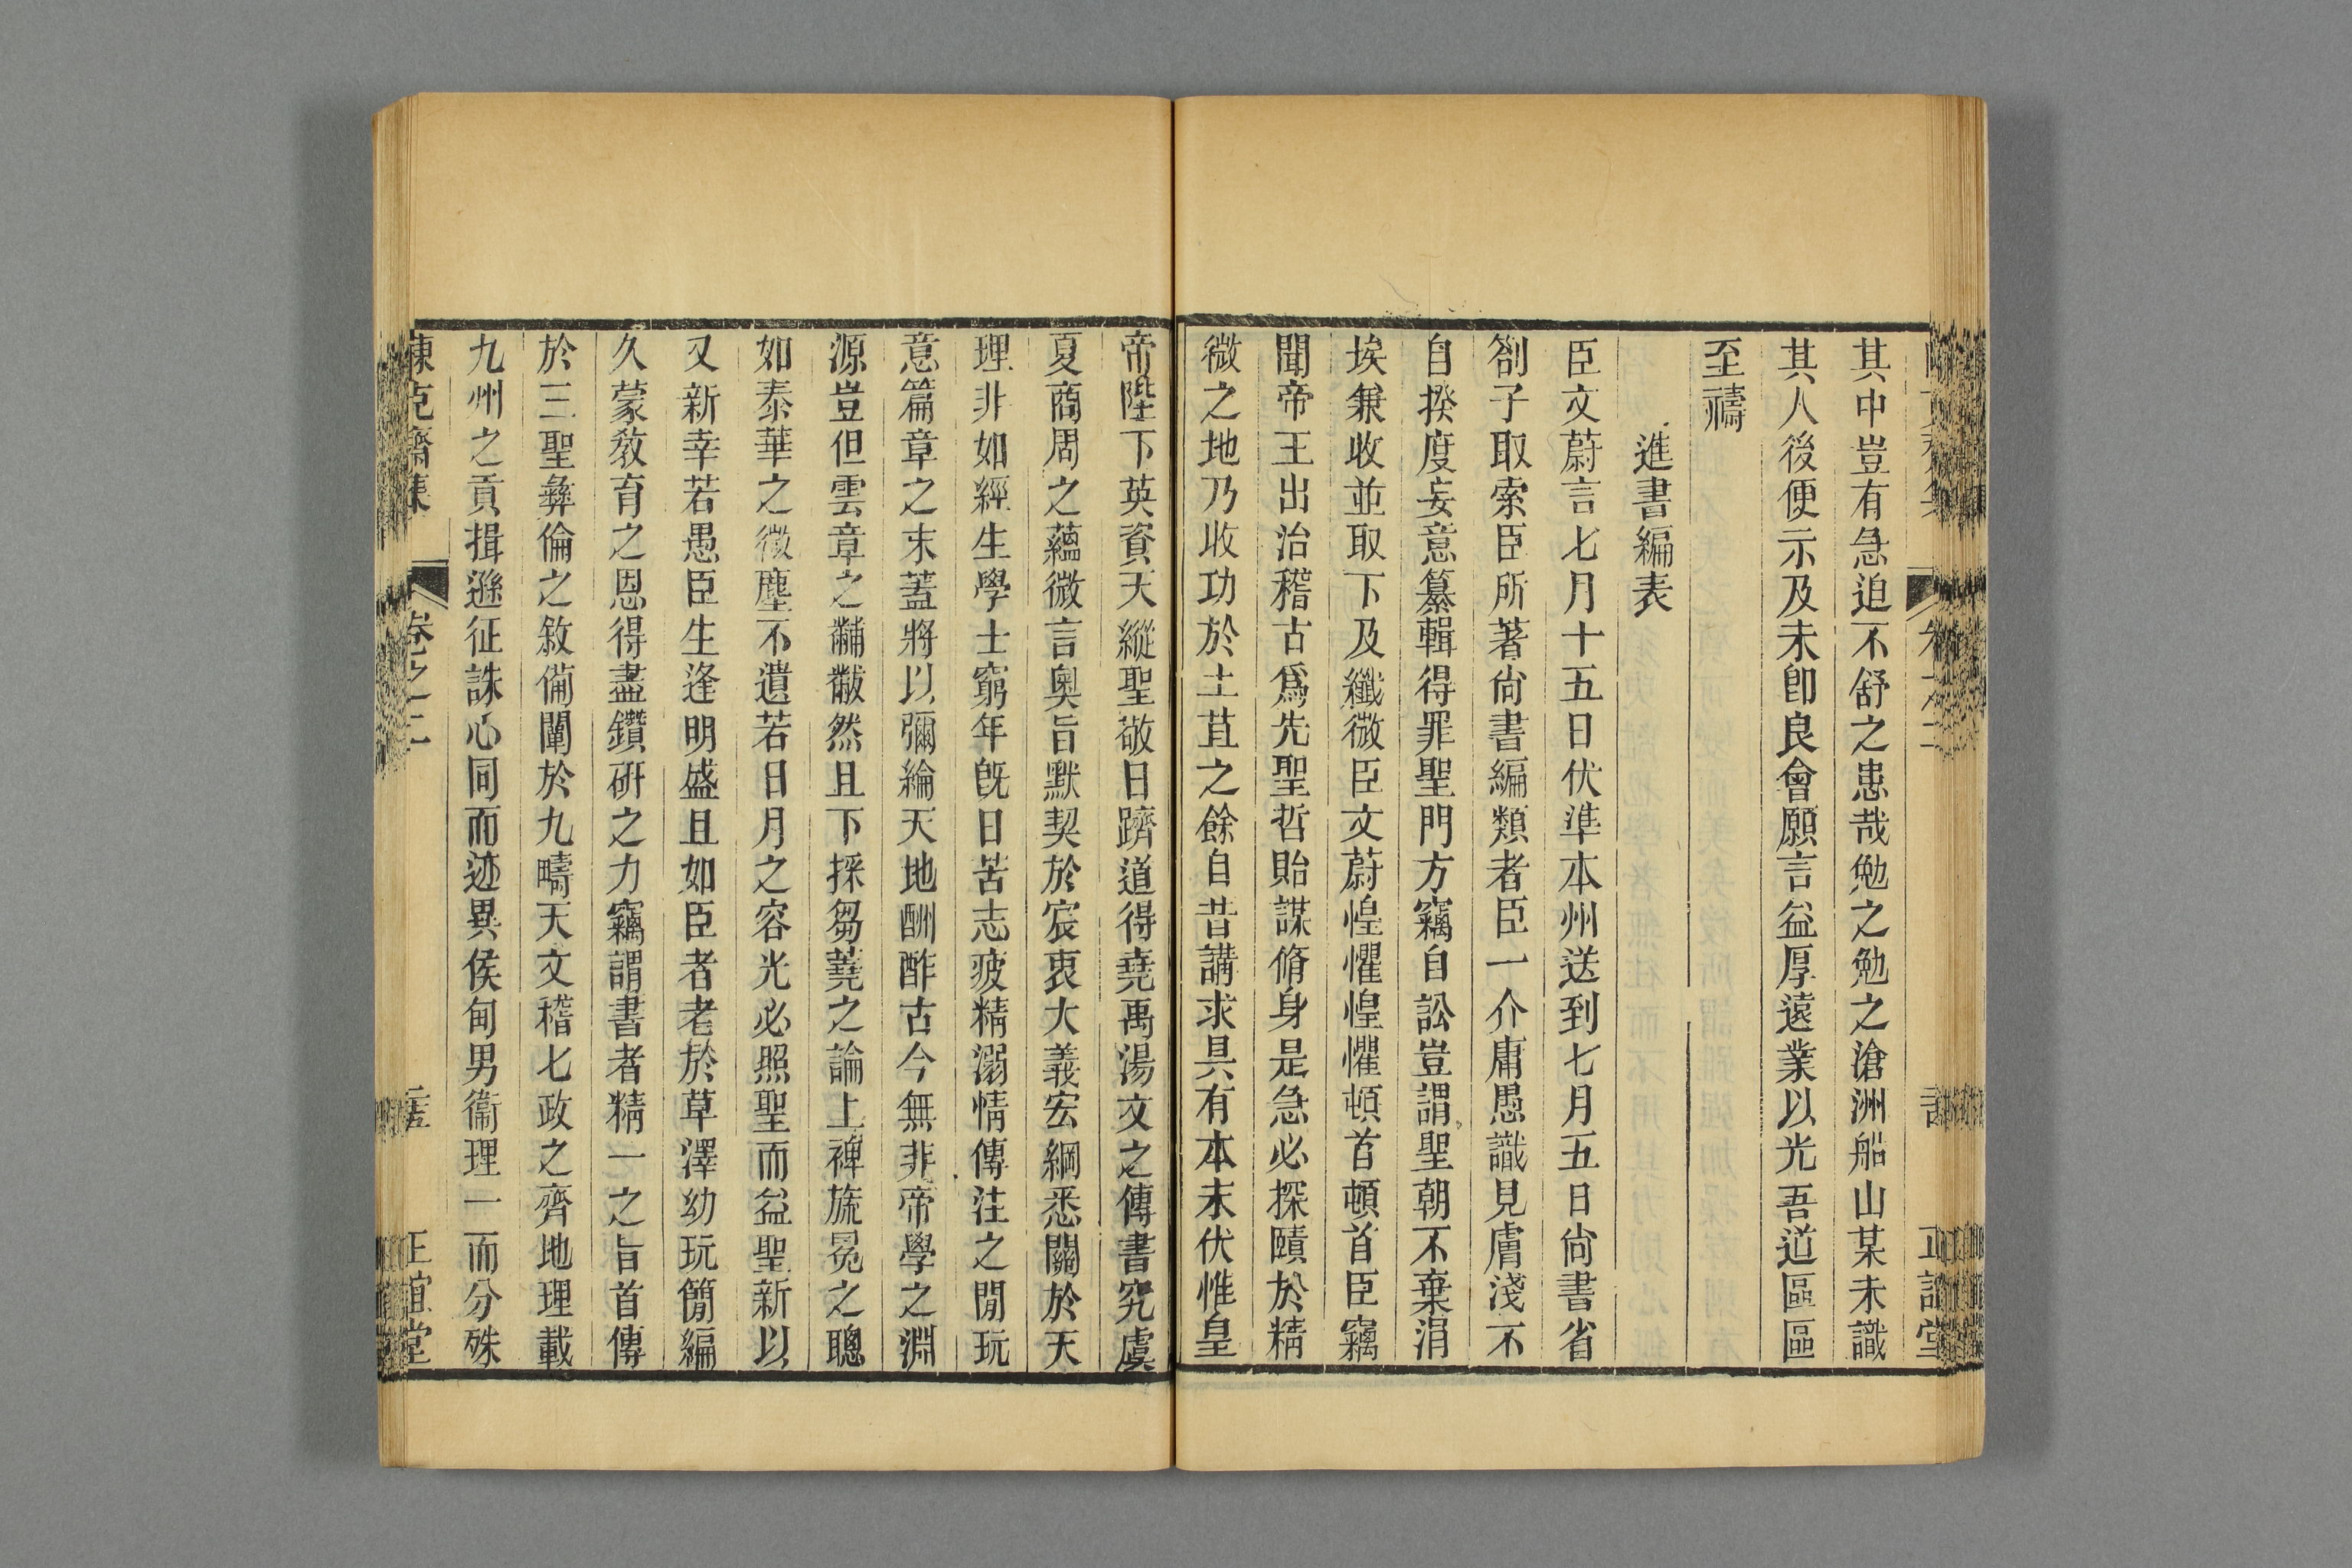 其中豈有急迫不舒之患哉勉之勉之滄洲船山某未識
其人後便示及未卽良會願言益厚遠業以光吾道區區
至禱
進書編表
臣文蔚言七月十五日伏準本州送到七月五日尙書省
劄子取索臣所著尙書編類者臣一介庸愚識見膚淺不
自揆度妄意纂輯得罪聖門方竊自訟豈謂聖朝不棄涓
埃兼收並取下及纖微臣文蔚惶懼惶懼頓首頓首臣竊
聞帝王出治稽古爲先聖哲貽謀脩身是急必探賾於精
微之地乃收功於土苴之餘自昔講求具有本末伏惟皇
帝陛下英資天縱聖敬日躋道得堯禹湯文之傳書究虞
夏商周之蘊微言奧旨默契於宸衷大義宏綱悉關於天
理非如經生學士窮年旣日苦志疲精溺情傳注之閒玩
意篇章之末蓋將以彌綸天地酬酢古今無非帝學之淵
源豈但雲章之黼黻然且下採芻蕘之論上裨旒冕之聰
如泰華之微塵不遺若日月之容光必照聖而益聖新以
又新幸若愚臣生逢明盛且如臣者老於草澤幼玩簡編
久蒙敎育之恩得盡鑽硏之力竊謂書者精一之旨首傳
於三聖彝倫之敘備闡於九疇天文稽七政之齊地理載
九州之貢揖遜征誅心同而迹異侯甸男衞理一而分殊
陳克齋集
卷之二
正誼堂